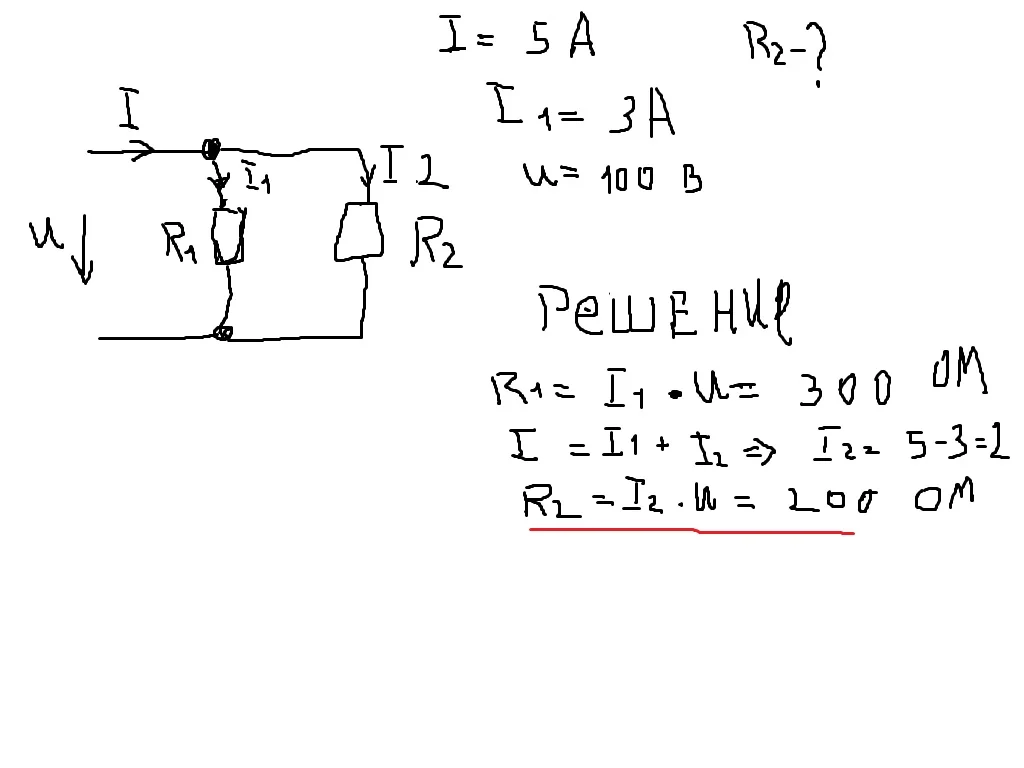 I = 5 A
R2 - ?
I
I1 = 3 A
I1
I2
u = 100 В
u
R1
R2
РеШЕНИе
R1 = I1 • U = 300 ОМ
I = I1 + I2 => I2 = 5 - 3 = 2
R2 = I2 . U = 200 ОМ